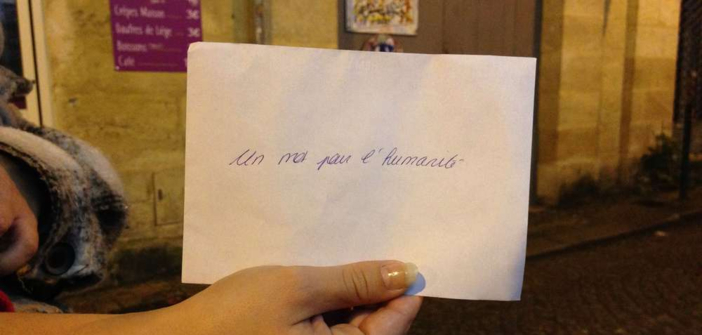 Crêpes Maison 3€
Gaufres de Liège 3€
Boissons
Café
Un mot pour l'humanité